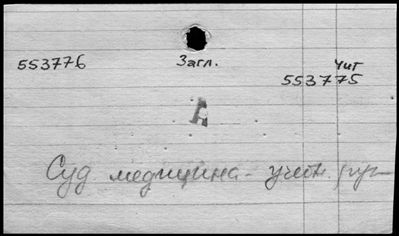 553776 Загл. Чит
553775
А
Суд медицина - учебн.